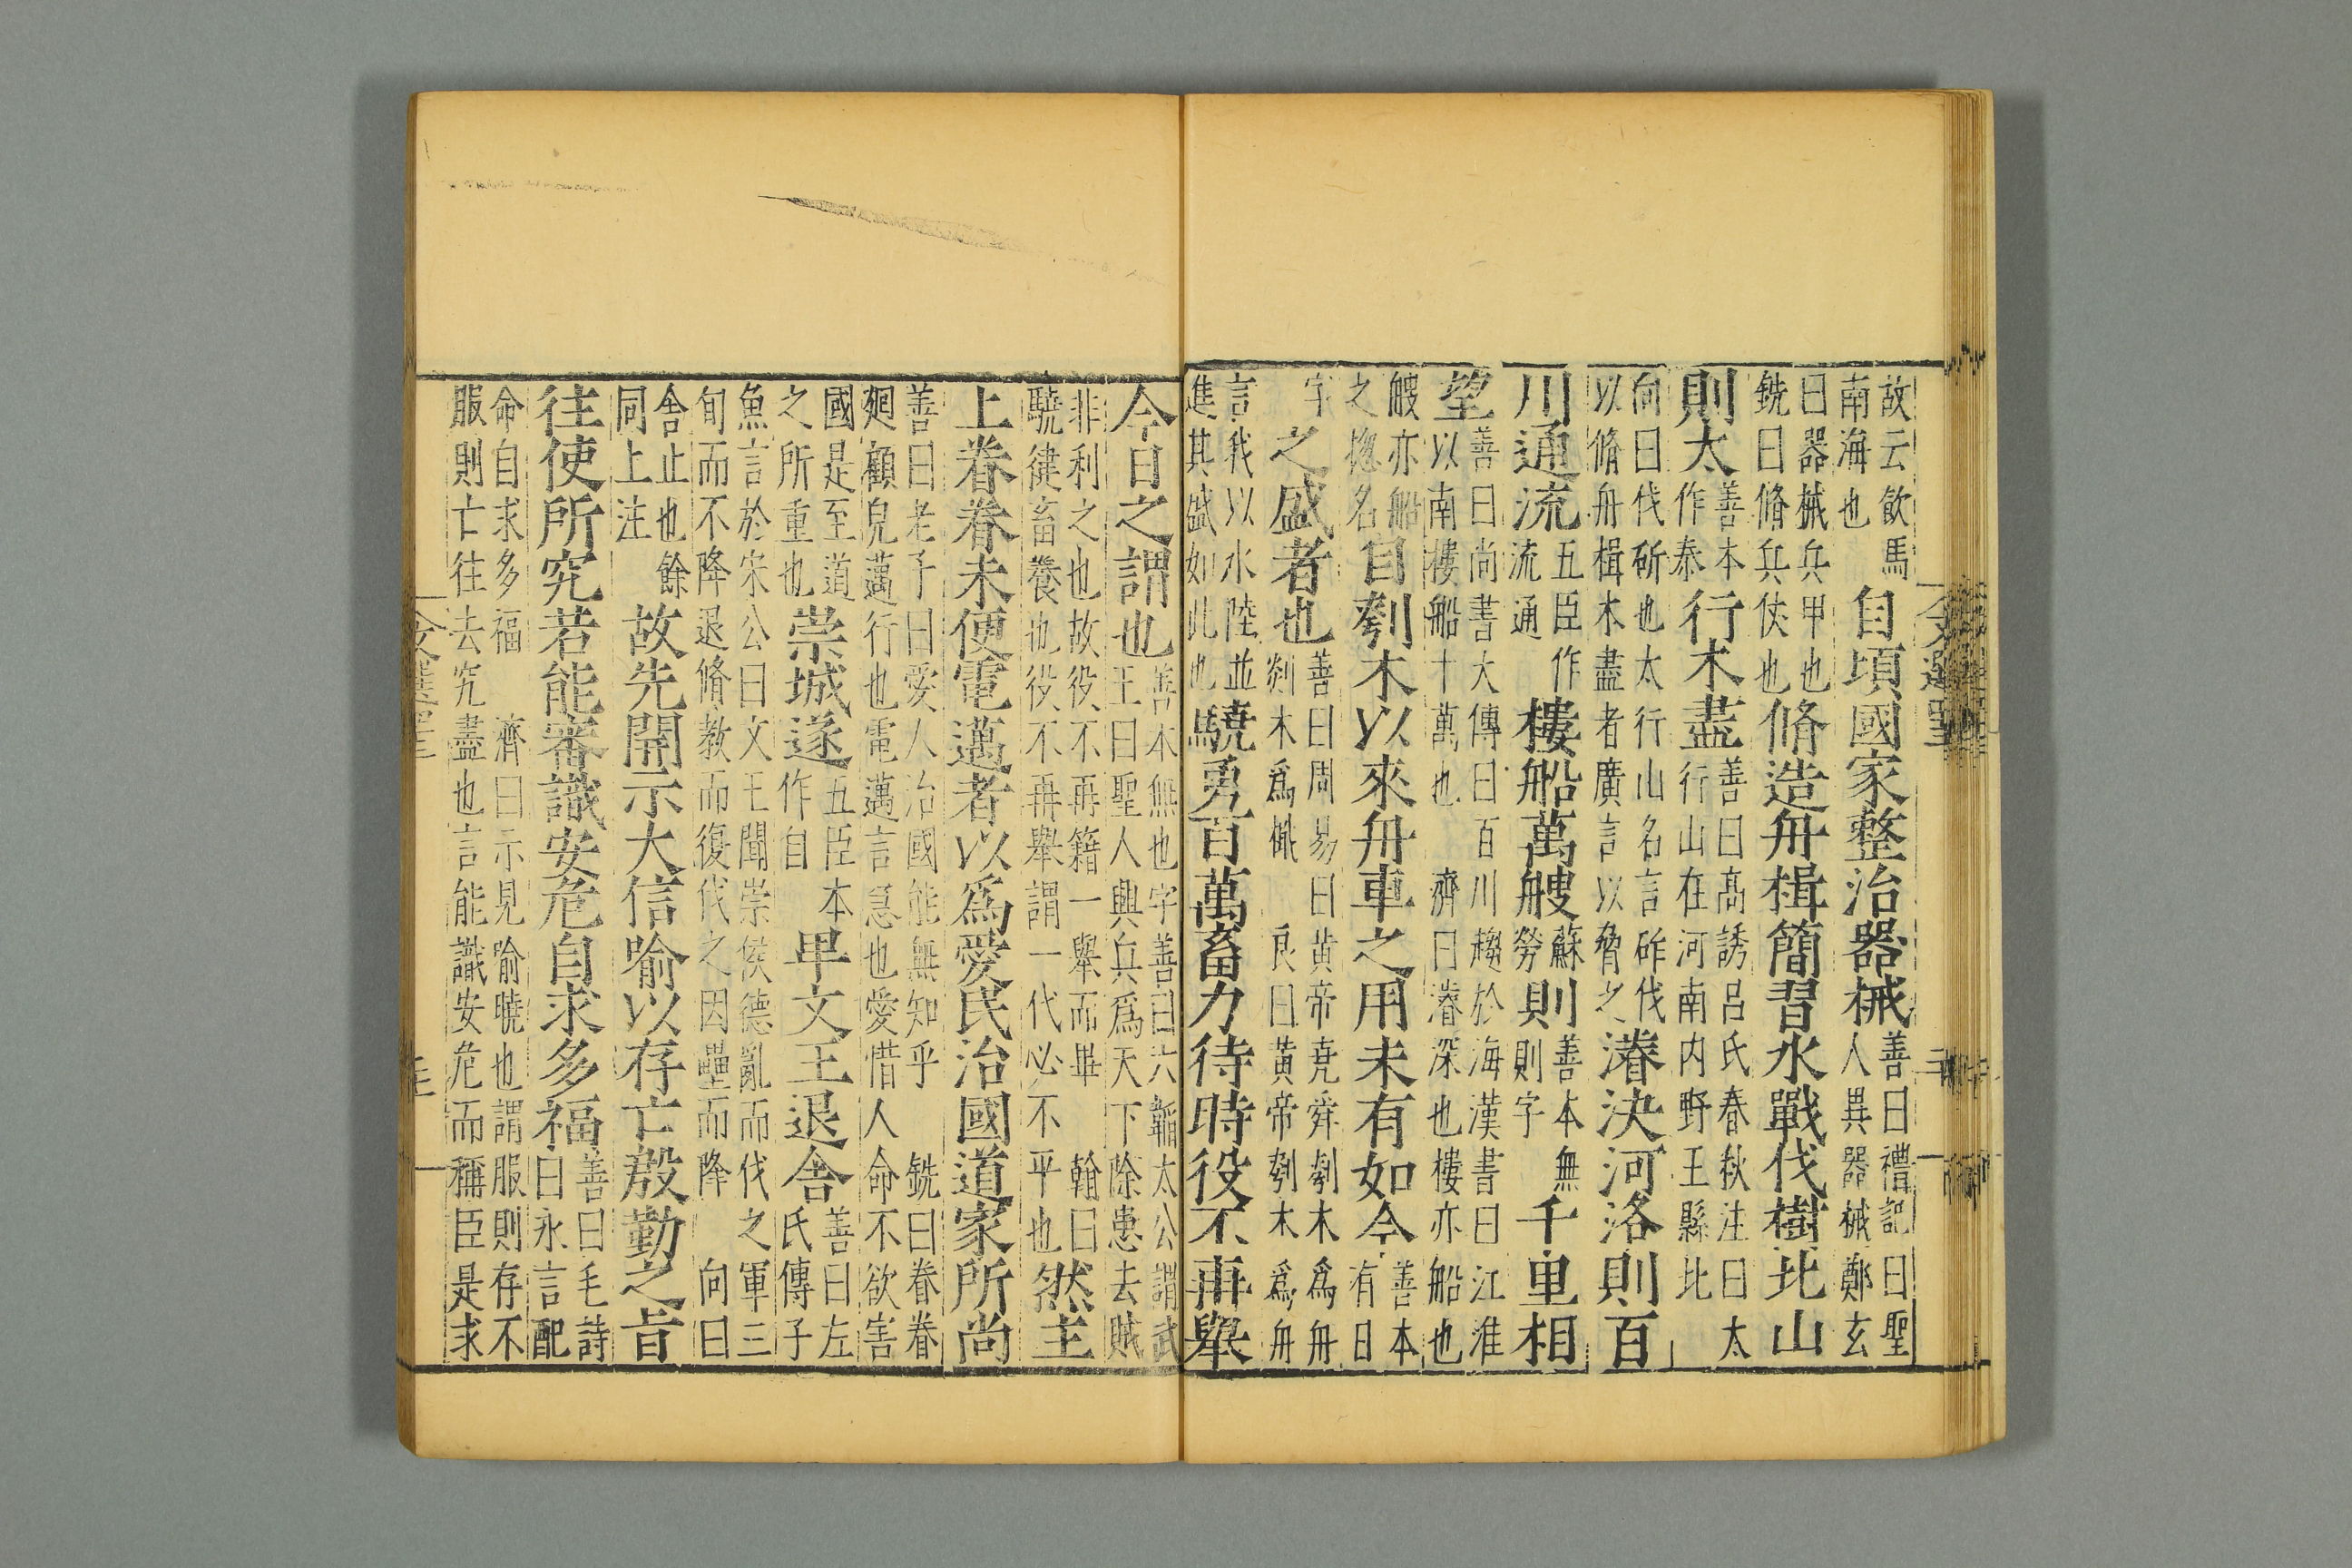 故云飲馬
南海也
自頃國家整治器械
善曰禮記曰聖
人異器械鄭玄
曰器械兵甲也
銑曰脩兵伕也
脩造舟楫簡習水戰伐樹北山
則太
善本
作泰
行木盡
善曰髙誘呂氏春秋注曰太
行山在河南内野王縣北
向曰伐斫也太行山名言砟伐
以脩舟楫木盡者廣言以脅之
濬決河洛則百
川通流
五臣作
流通
樓船萬艘
蘇
勞
則
善本無
則字
千里相
望
善曰尚書大傳曰百川趨於海漢書曰江淮
以南樓船十萬也 濟曰濬深也樓亦船也
艘亦船
之揔名
自刳木以來舟車之用未有如今
善本
有日
字
之盛者也
善曰周易曰黄帝堯舜刳木爲舟
剡木爲檝 良曰黃帝刳木爲舟
言我以水陸並
進其盛如此也
驍勇百萬畜力待時役不再舉
今日之謂也
善本無也字善曰六韜太公謂武
王曰聖人興兵爲天下除患去賊
非利之也故役不再籍一舉而畢 翰曰
驍徤畜養也役不再舉謂一代必不平也
然主
上眷眷未便電邁者以爲愛民治國道家所尚
善曰老子曰愛人治國能無知乎 銑曰眷眷
廻顧皃邁行也電邁言急也愛惜人命不欲害
國是至道
之所重也
崇城遂
五臣本
作自
卑文王退舍
善曰左
氏傳子
魚言於宋公曰文王聞崇侯德亂而伐之軍三
旬而不降退脩教而復伐之因壘而降 向曰
舍止也餘
同上注
故先開示大信喻以存亡殷勤之旨
往使所究若能審識安危自求多福
善曰毛詩
曰永言配
命自求多福 濟曰示見喻曉也謂服則存不
服則亡往去究盡也言能識安危而稱臣是求